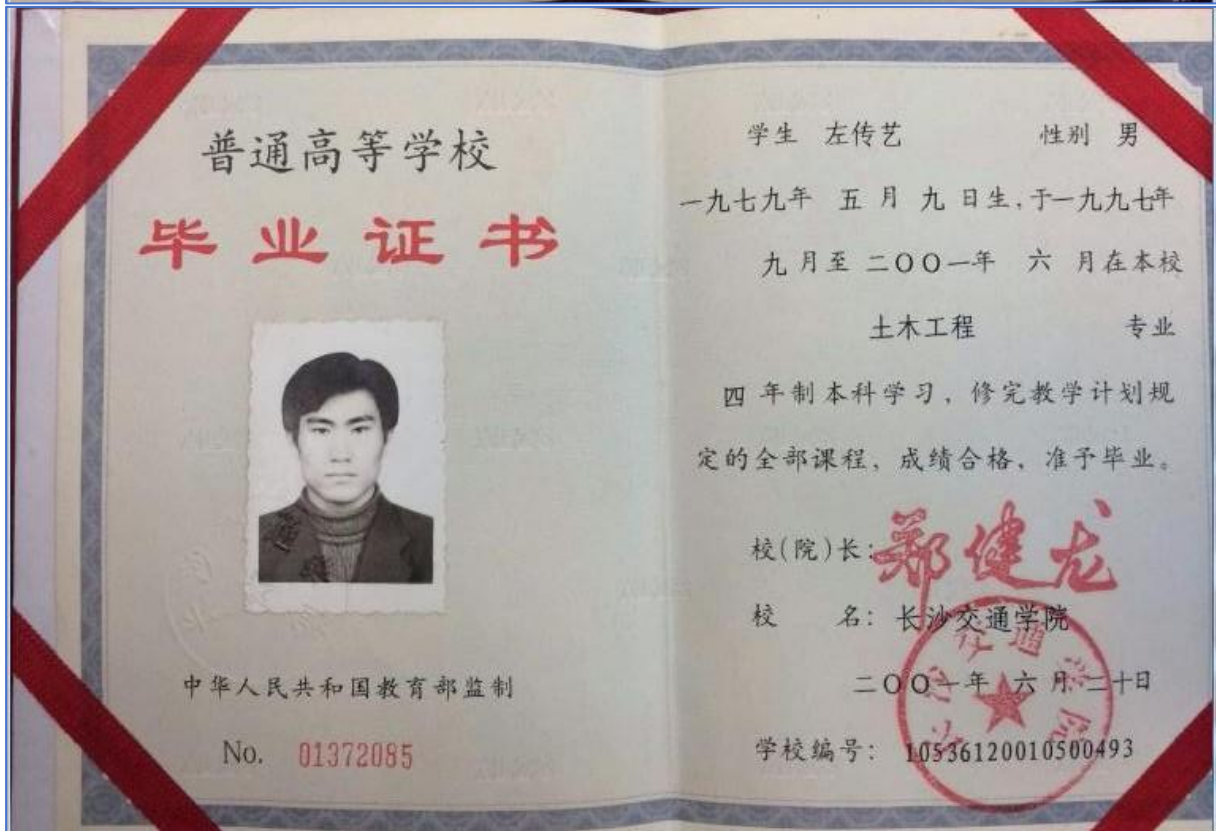 普通高等学校
毕业证书
中华人民共和国教育部监制
No. 01372085
学生 左传艺 性别 男
一九七九年 五 月 九 日生,于一九九七年
九 月至 二〇〇一年 六 月在本校
土木工程 专业
四 年制本科学习,修完教学计划规
定的全部课程,成绩合格,准予毕业。
校(院)长:郑健龙
校 名:长沙交通学院
二〇〇一年 六 月二十日
学校编号:10536120010500493
长沙交通学院